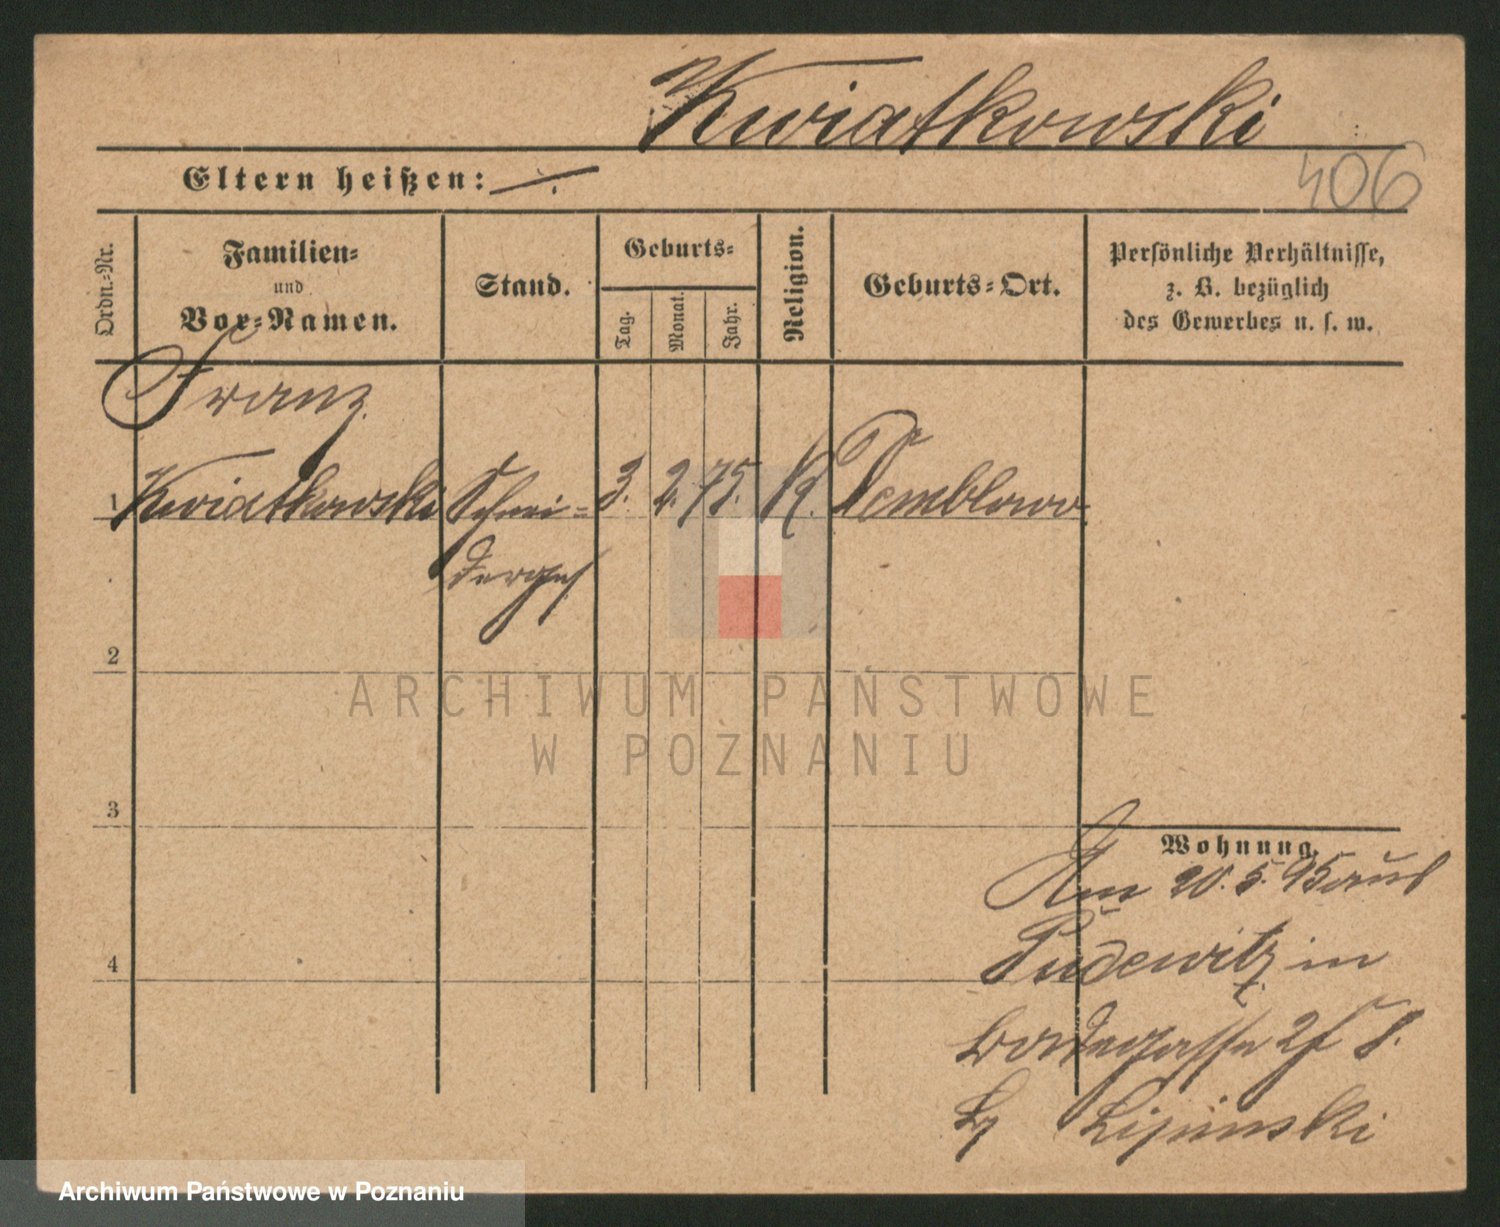 Kwiatkowski
406
Eltern heißen: ./.
Ordn.=Nr.
Familien=
und
Vor=Namen.
Stand.
Geburts=
Tag.
Monat.
Jahr.
Religion.
Geburts=Ort.
Persönliche Verhältnisse,
z. B. bezüglich
des Gewerbes u. s. w.
Franz
1 Kwiatkowski Schnei= 3. 2. 75. K. Demblowo
derges
2
ARCHIWUM PAŃSTWOWE
W POZNANIU
3
Wohnung.
Am 20. 5. 95 aus
Pudewitz in
4
8.
Lipinski
Archiwum Państwowe w Poznaniu